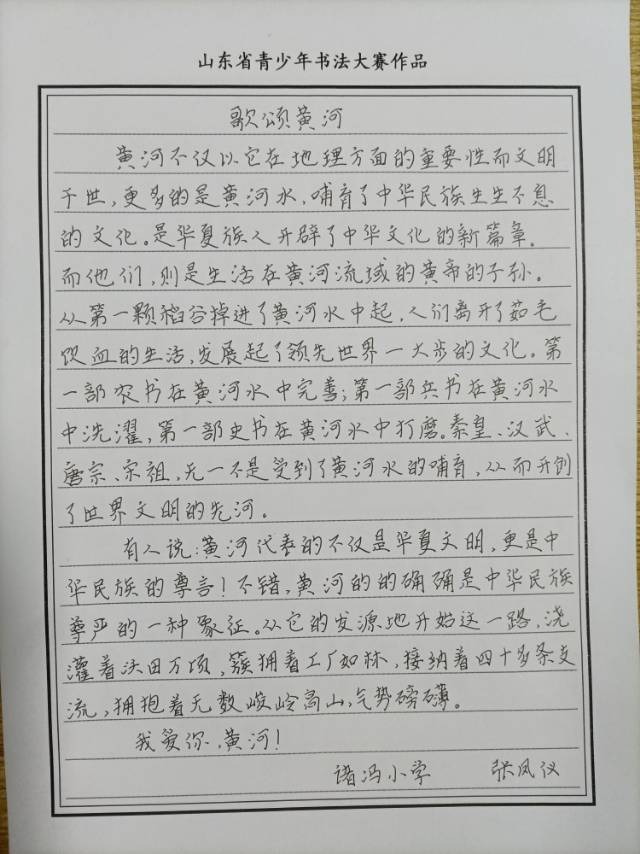 山东省青少年书法大赛作品
歌颂黄河
黄河不仅以它在地理方面的重要性而文明
于世，更多的是黄河水，哺育了中华民族生生不息
的文化。是华夏族人开辟了中华文化的新篇章。
而他们，则是生活在黄河流域的黄帝的子孙。
从第一颗稻谷掉进了黄河水中起，人们离开了茹毛
饮血的生活，发展起了领先世界一大步的文化。第
一部农书在黄河水中完善；第一部兵书在黄河水
中洗濯，第一部史书在黄河水中打磨。秦皇、汉武、
唐宗、宋祖，无一不是受到了黄河水的哺育，从而开创
了世界文明的先河。
有人说：黄河代表的不仅是华夏文明，更是中
华民族的尊言！不错，黄河的的确确是中华民族
尊严的一种象征。从它的发源地开始这一路，浇
灌着沃田万顷，簇拥着工厂如林，接纳着四十多条支
流，拥抱着无数峻岭高山，气势磅礴。
我爱你，黄河！
诸冯小学 张凤仪